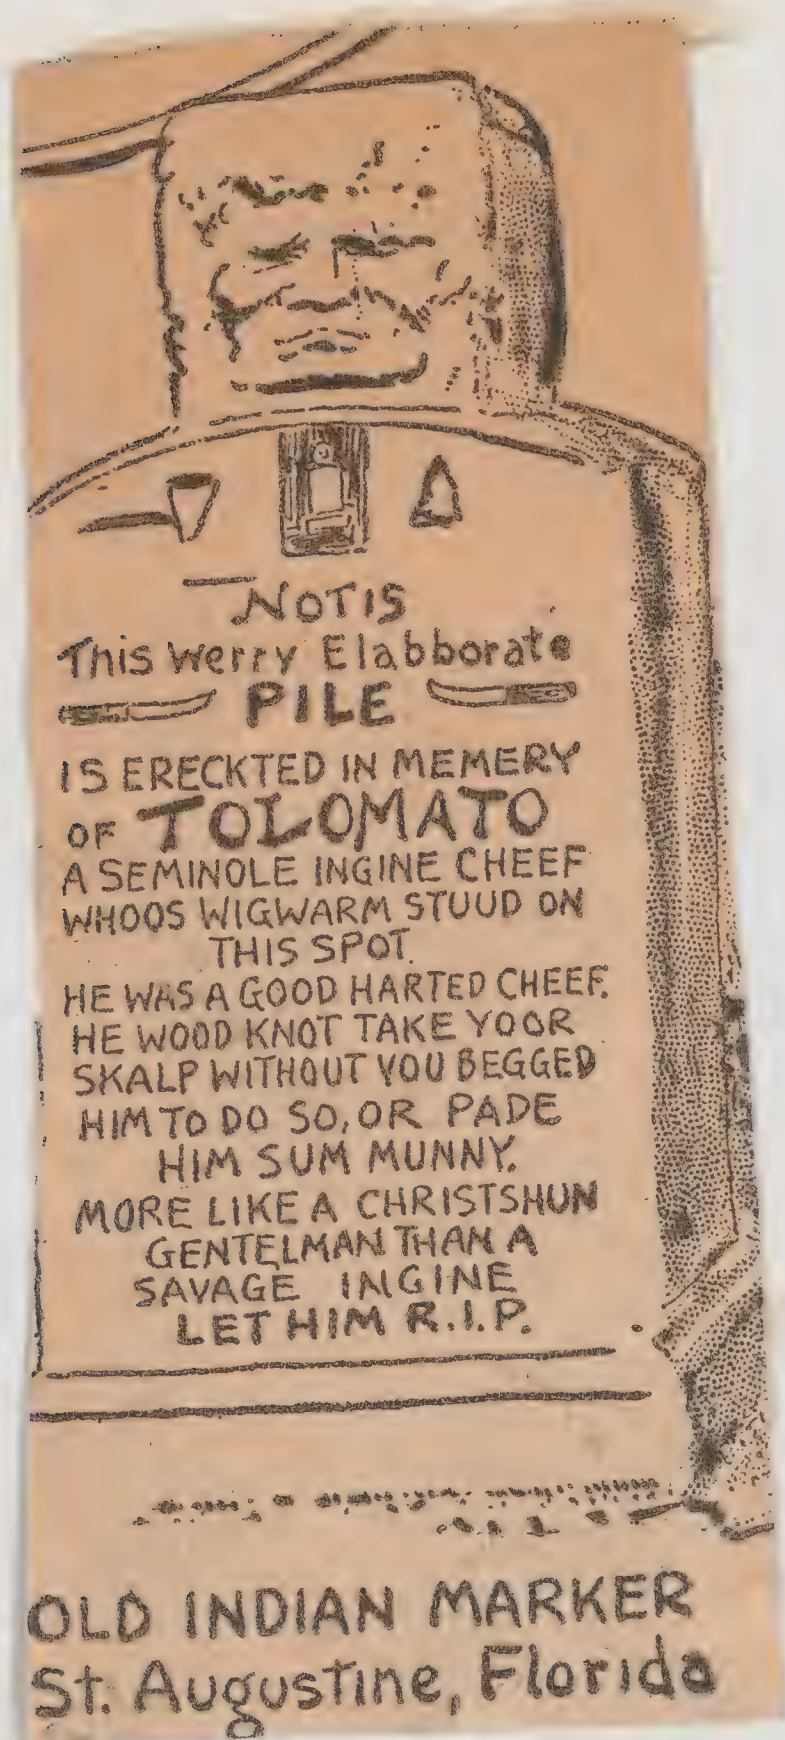 NOTIS
This Werry Elabborate
PILE
IS ERECKTED IN MEMERY
OF TOLOMATO
A SEMINOLE INGINE CHEEF
WHOOS WIGWARM STUUD ON
THIS SPOT.
HE WAS A GOOD HARTED CHEEF.
HE WOOD KNOT TAKE YOOR
SKALP WITHOUT YOU BEGGED
HIM TO DO SO, OR PADE
HIM SUM MUNNY.
MORE LIKE A CHRISTSHUN
GENTELMAN THAN A
SAVAGE INGINE
LET HIM R.I.P.
OLD INDIAN MARKER
St. Augustine, Florida